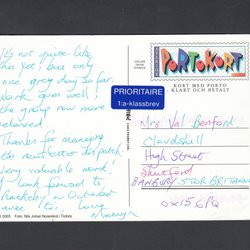 It's not quite like
this yet, but only
one grey day so far.
Work goes well!
the group now more
relaxed
Thanks for managing
news letter dispatch.
Very valuable work!
I look forward to
in October
love
PRIORITAIRE
1:a-klassbrev
PORTOKORT
KORT MED PORTO
KLART OCH BETALT
Mrs. Val Benford
High Street
Shutford
BANBURY STOR BRITANNIEN
OX15 6PQ
Foto: Nils Johan Norenlind / Tiofoto